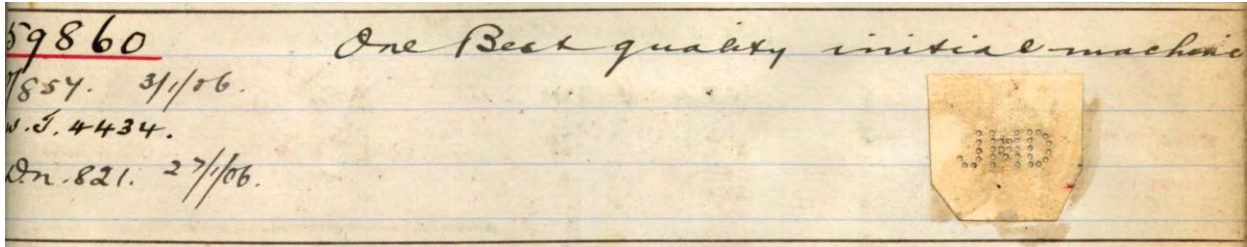 59860 One Best quality initial machine
7857. 3/1/06.
W.J. 4434.
Dn. 821. 27/1/06.